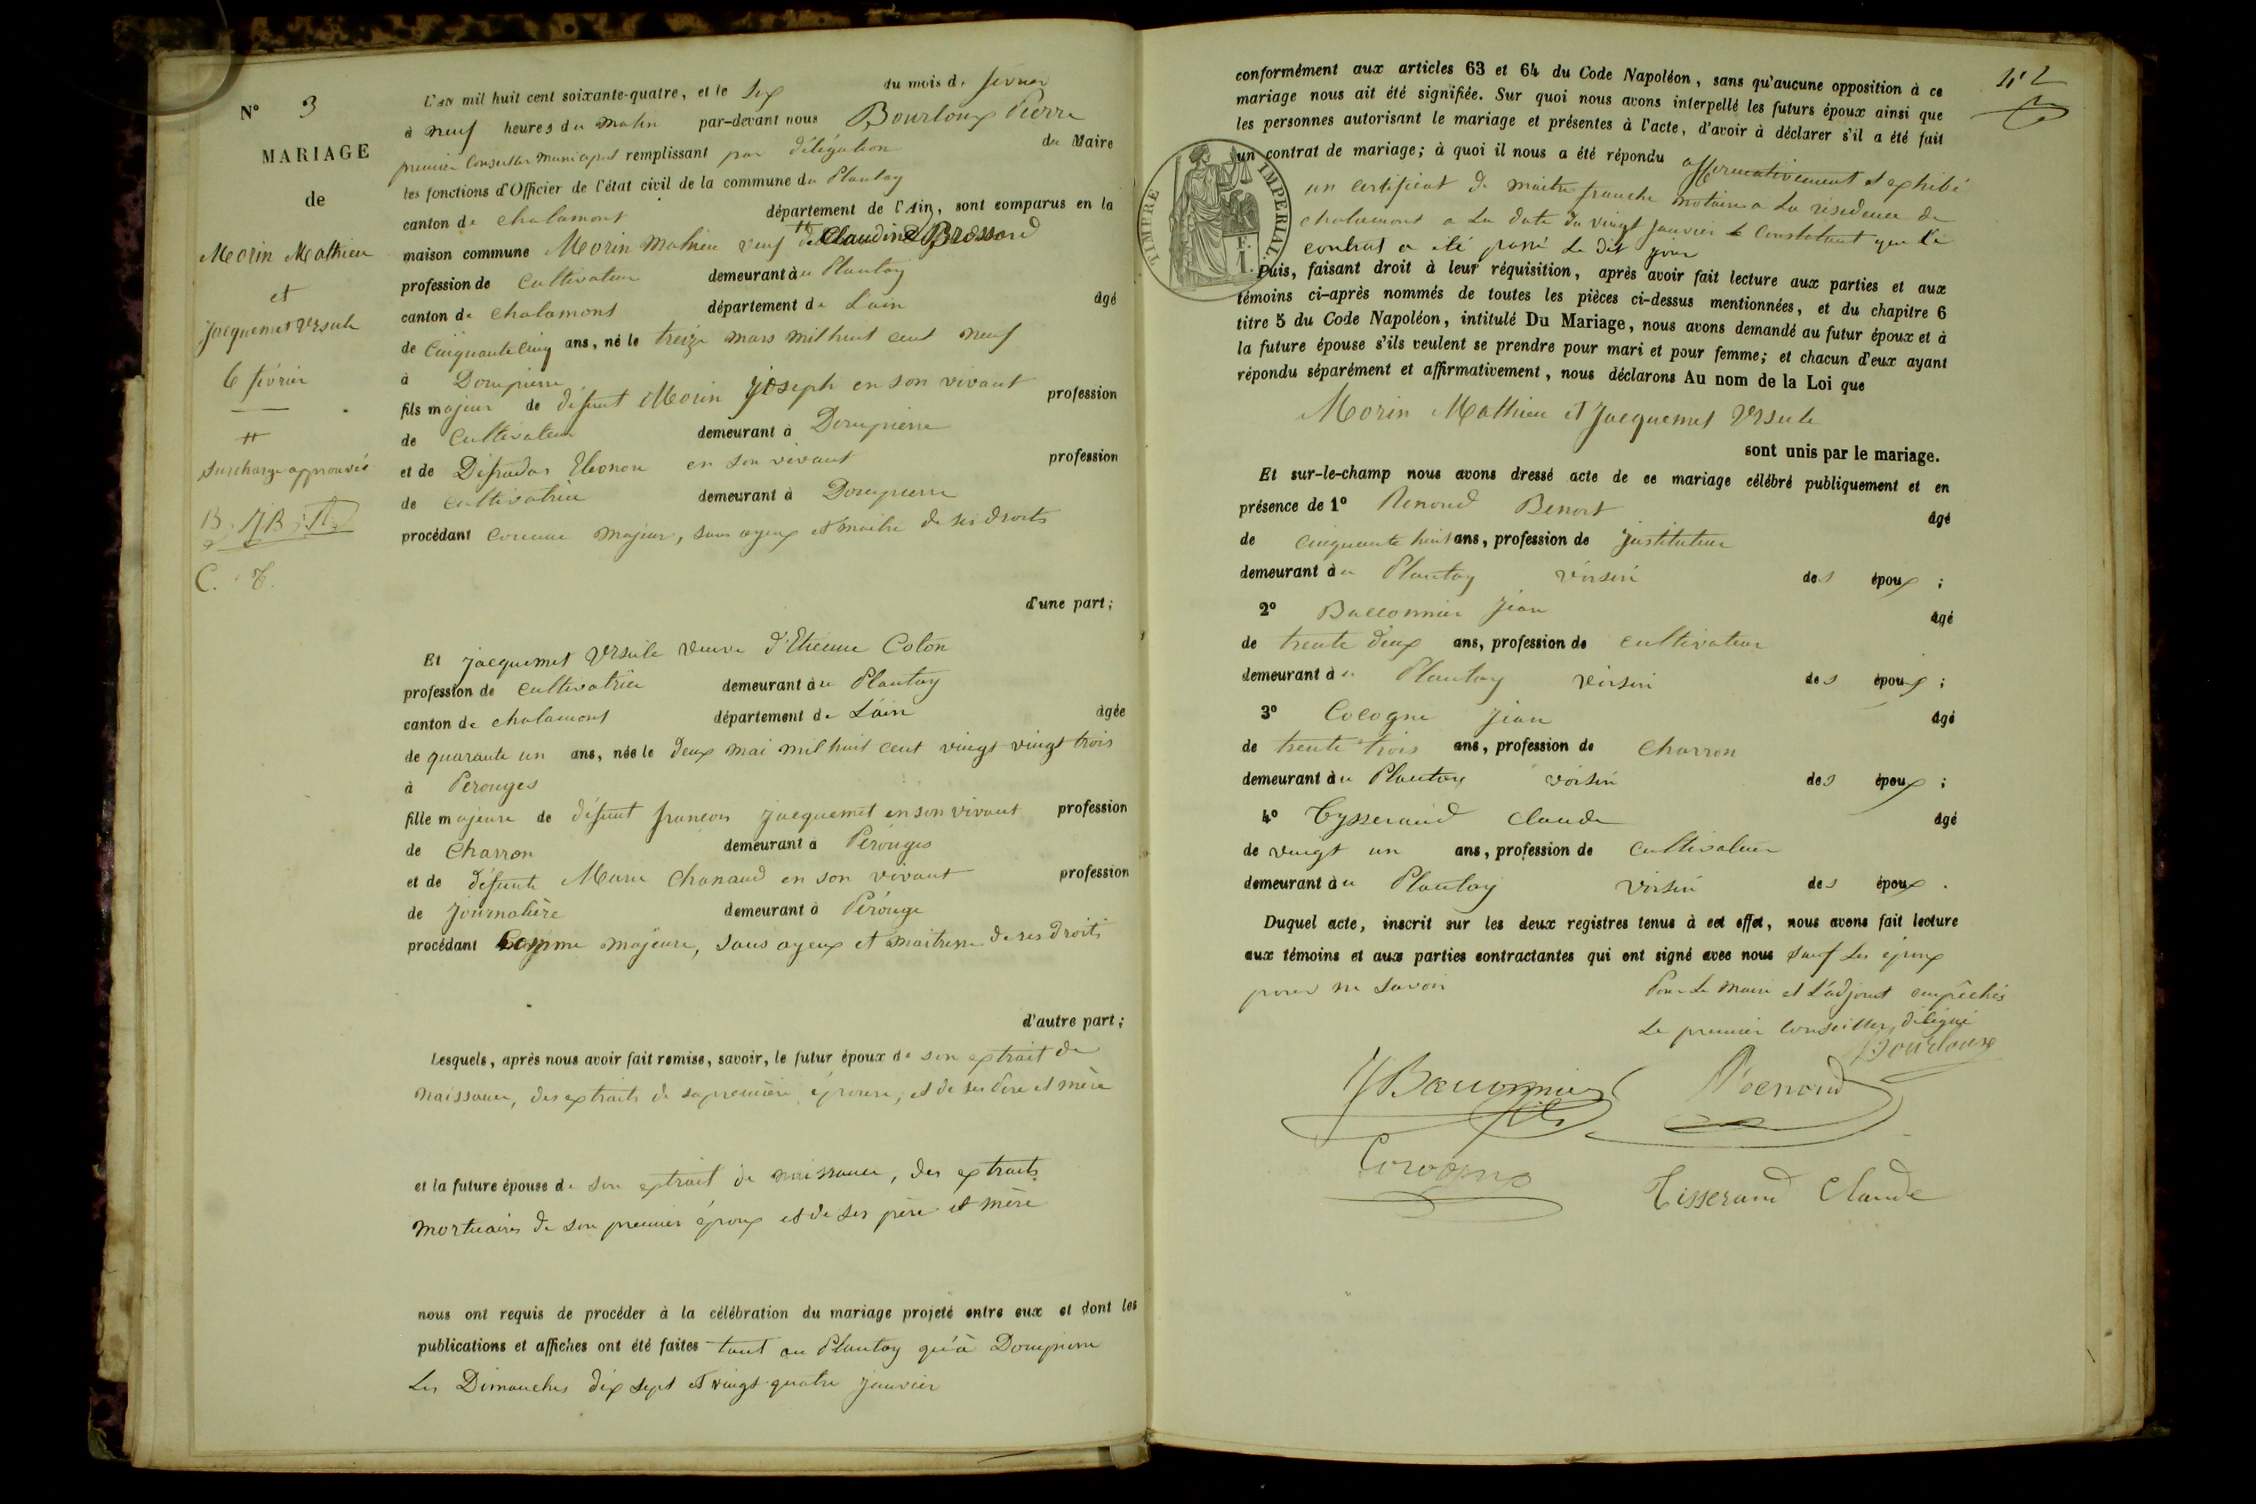 N° 3
MARIAGE
de
Morin Mathieu
et
Jacquemet Ursule
6 février
#
surcharge approuvée
B. JB. R.
C. T.
L'AN mil huit cent soixante-quatre, et le Six du mois de février
à neuf heures du matin par-devant nous Bourloux Pierre
premier Conseiller Municipal remplissant par délégation du Maire
les fonctions d'Officier de l'état civil de la commune du Plantay
canton de chalamont département de l'Ain, sont comparus en la
maison commune Morin Mathieu veuf de Claudine Brossard
profession de Cultivateur demeurant au Plantay
canton de chalamont département de L'ain âgé
de Cinquante cinq ans, né le treize mars mil huit cent neuf
à Dompierre
fils majeur de défunt Morin Joseph en son vivant profession
de Cultivateur demeurant à Dompierre
et de Défradas Eleonore en son vivant profession
de cultivatrice demeurant à Dompierre
procédant Comme majeur, sans ayeux et maître de ses droits
d'une part ;
Et Jacquemet Ursule veuve d'Etienne Colon
profession de cultivatrice demeurant au Plantay
canton de chalamont département de L'ain âgée
de quarante un ans, née le deux mai mil huit cent vingt vingt trois
à Perouges
fille majeure de défunt francois Jacquemet en son vivant profession
de Charron demeurant à Pérouges
et de défunte Marie Chanaud en son vivant profession
de Journalière demeurant à Pérouge
procédant Comme majeure, sans ayeux et maitresse de ses droits
d'autre part ;
Lesquels, après nous avoir fait remise, savoir, le futur époux de son extrait de
naissance, des extraits de sa première épouse, et de ses Père et mère
et la future épouse de son extrait de naissance, des extraits
mortuaires de son premier époux et de ses père et mère
nous ont requis de procéder à la célébration du mariage projeté entre eux et dont les
publications et affiches ont été faites tant au Plantay qu'à Dompierre
les Dimanches dix sept et vingt quatre janvier
conformément aux articles 63 et 64 du Code Napoléon, sans qu'aucune opposition à ce
mariage nous ait été signifiée. Sur quoi nous avons interpellé les futurs époux ainsi que
les personnes autorisant le mariage et présentes à l'acte, d'avoir à déclarer s'il a été fait
un contrat de mariage ; à quoi il nous a été répondu affirmativement et exhibé
un certificat de maitre franche notaire a la résidence de
chalamont a la date du vingt janvier le Constatant que le
contrat a été passé le dit jour
TIMBRE IMPERIAL
Puis, faisant droit à leur réquisition, après avoir fait lecture aux parties et aux
témoins ci-après nommés de toutes les pièces ci-dessus mentionnées, et du chapitre 6
titre 5 du Code Napoléon, intitulé Du Mariage, nous avons demandé au futur époux et à
la future épouse s'ils veulent se prendre pour mari et pour femme; et chacun d'eux ayant
répondu séparément et affirmativement, nous déclarons Au nom de la Loi que
Morin Mathieu et Jacquemet Ursule
sont unis par le mariage.
Et sur-le-champ nous avons dressé acte de ce mariage célébré publiquement et en
présence de 1° Renoud Benoit âgé
de cinquante huit ans, profession de Instituteur
demeurant au Plantay voisin des époux ;
2° Bacconnier Jean âgé
de trente deux ans, profession de cultivateur
demeurant au Plantay voisin des époux ;
3° Cocogne Jean âgé
de trente trois ans, profession de Charron
demeurant au Plantay voisin des époux ;
4° Tysseraud Claude âgé
de vingt un ans, profession de Cultivateur
demeurant au Plantay voisin des époux .
Duquel acte, inscrit sur les deux registres tenus à cet effet, nous avons fait lecture
aux témoins et aux parties contractantes qui ont signé avec nous sauf les époux
pour ne savoir
Pour le Maire et L'adjoint empêchés
Le premier Conseiller délégué
Bourloux
JBacconnier Renoud
Cocogne Tisserand Claude